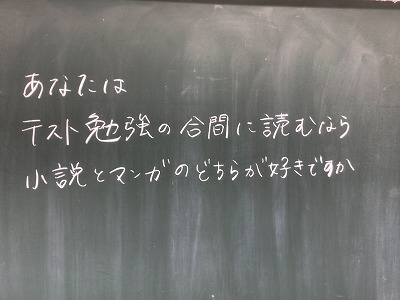 あなたは
テスト勉強の合間に読むなら
小説とマンガのどちらが好きですか